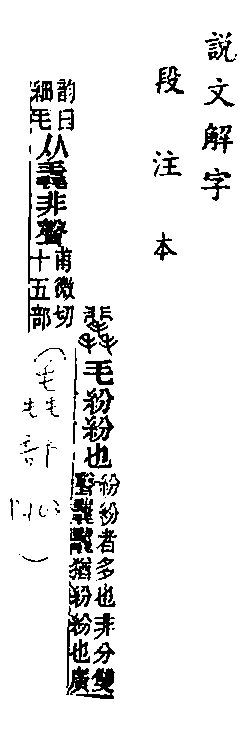 說文解字
段注本
毛紛紛也
紛紛者多也非分雙
聲猶紛紛也廣
韵曰
細毛
从毳非聲
甫微切
十五部